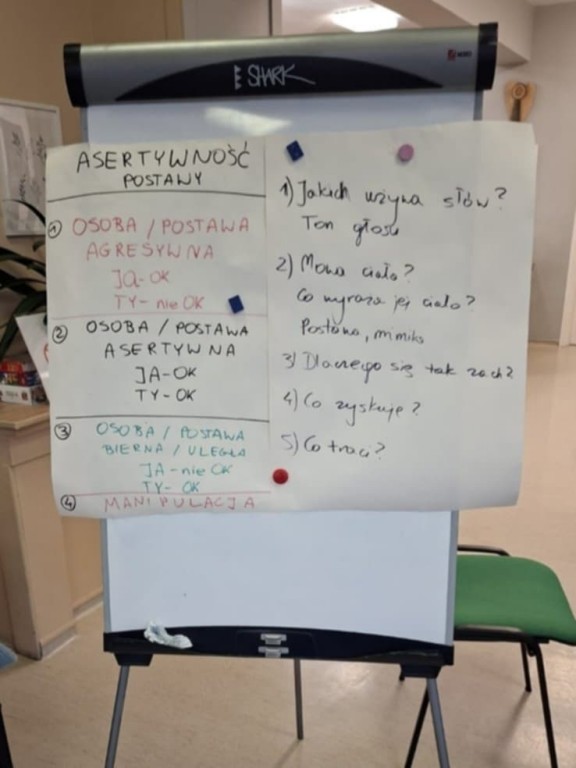 SHARK
ASERTYWNOŚĆ
POSTAWY
1 OSOBA / POSTAWA
AGRESYWNA
JA - OK
TY - nie OK
2 OSOBA / POSTAWA
ASERTYWNA
JA - OK
TY - OK
3 OSOBA / POSTAWA
BIERNA / ULEGŁA
JA - nie OK
TY - OK
4 MANIPULACJA
1) Jakich używa słów?
Ton głosu
2) Mowa ciała?
Co wyraża jej ciało?
Postawa, mimika
3) Dlaczego się tak zach?
4) Co zyskuje?
5) Co traci?